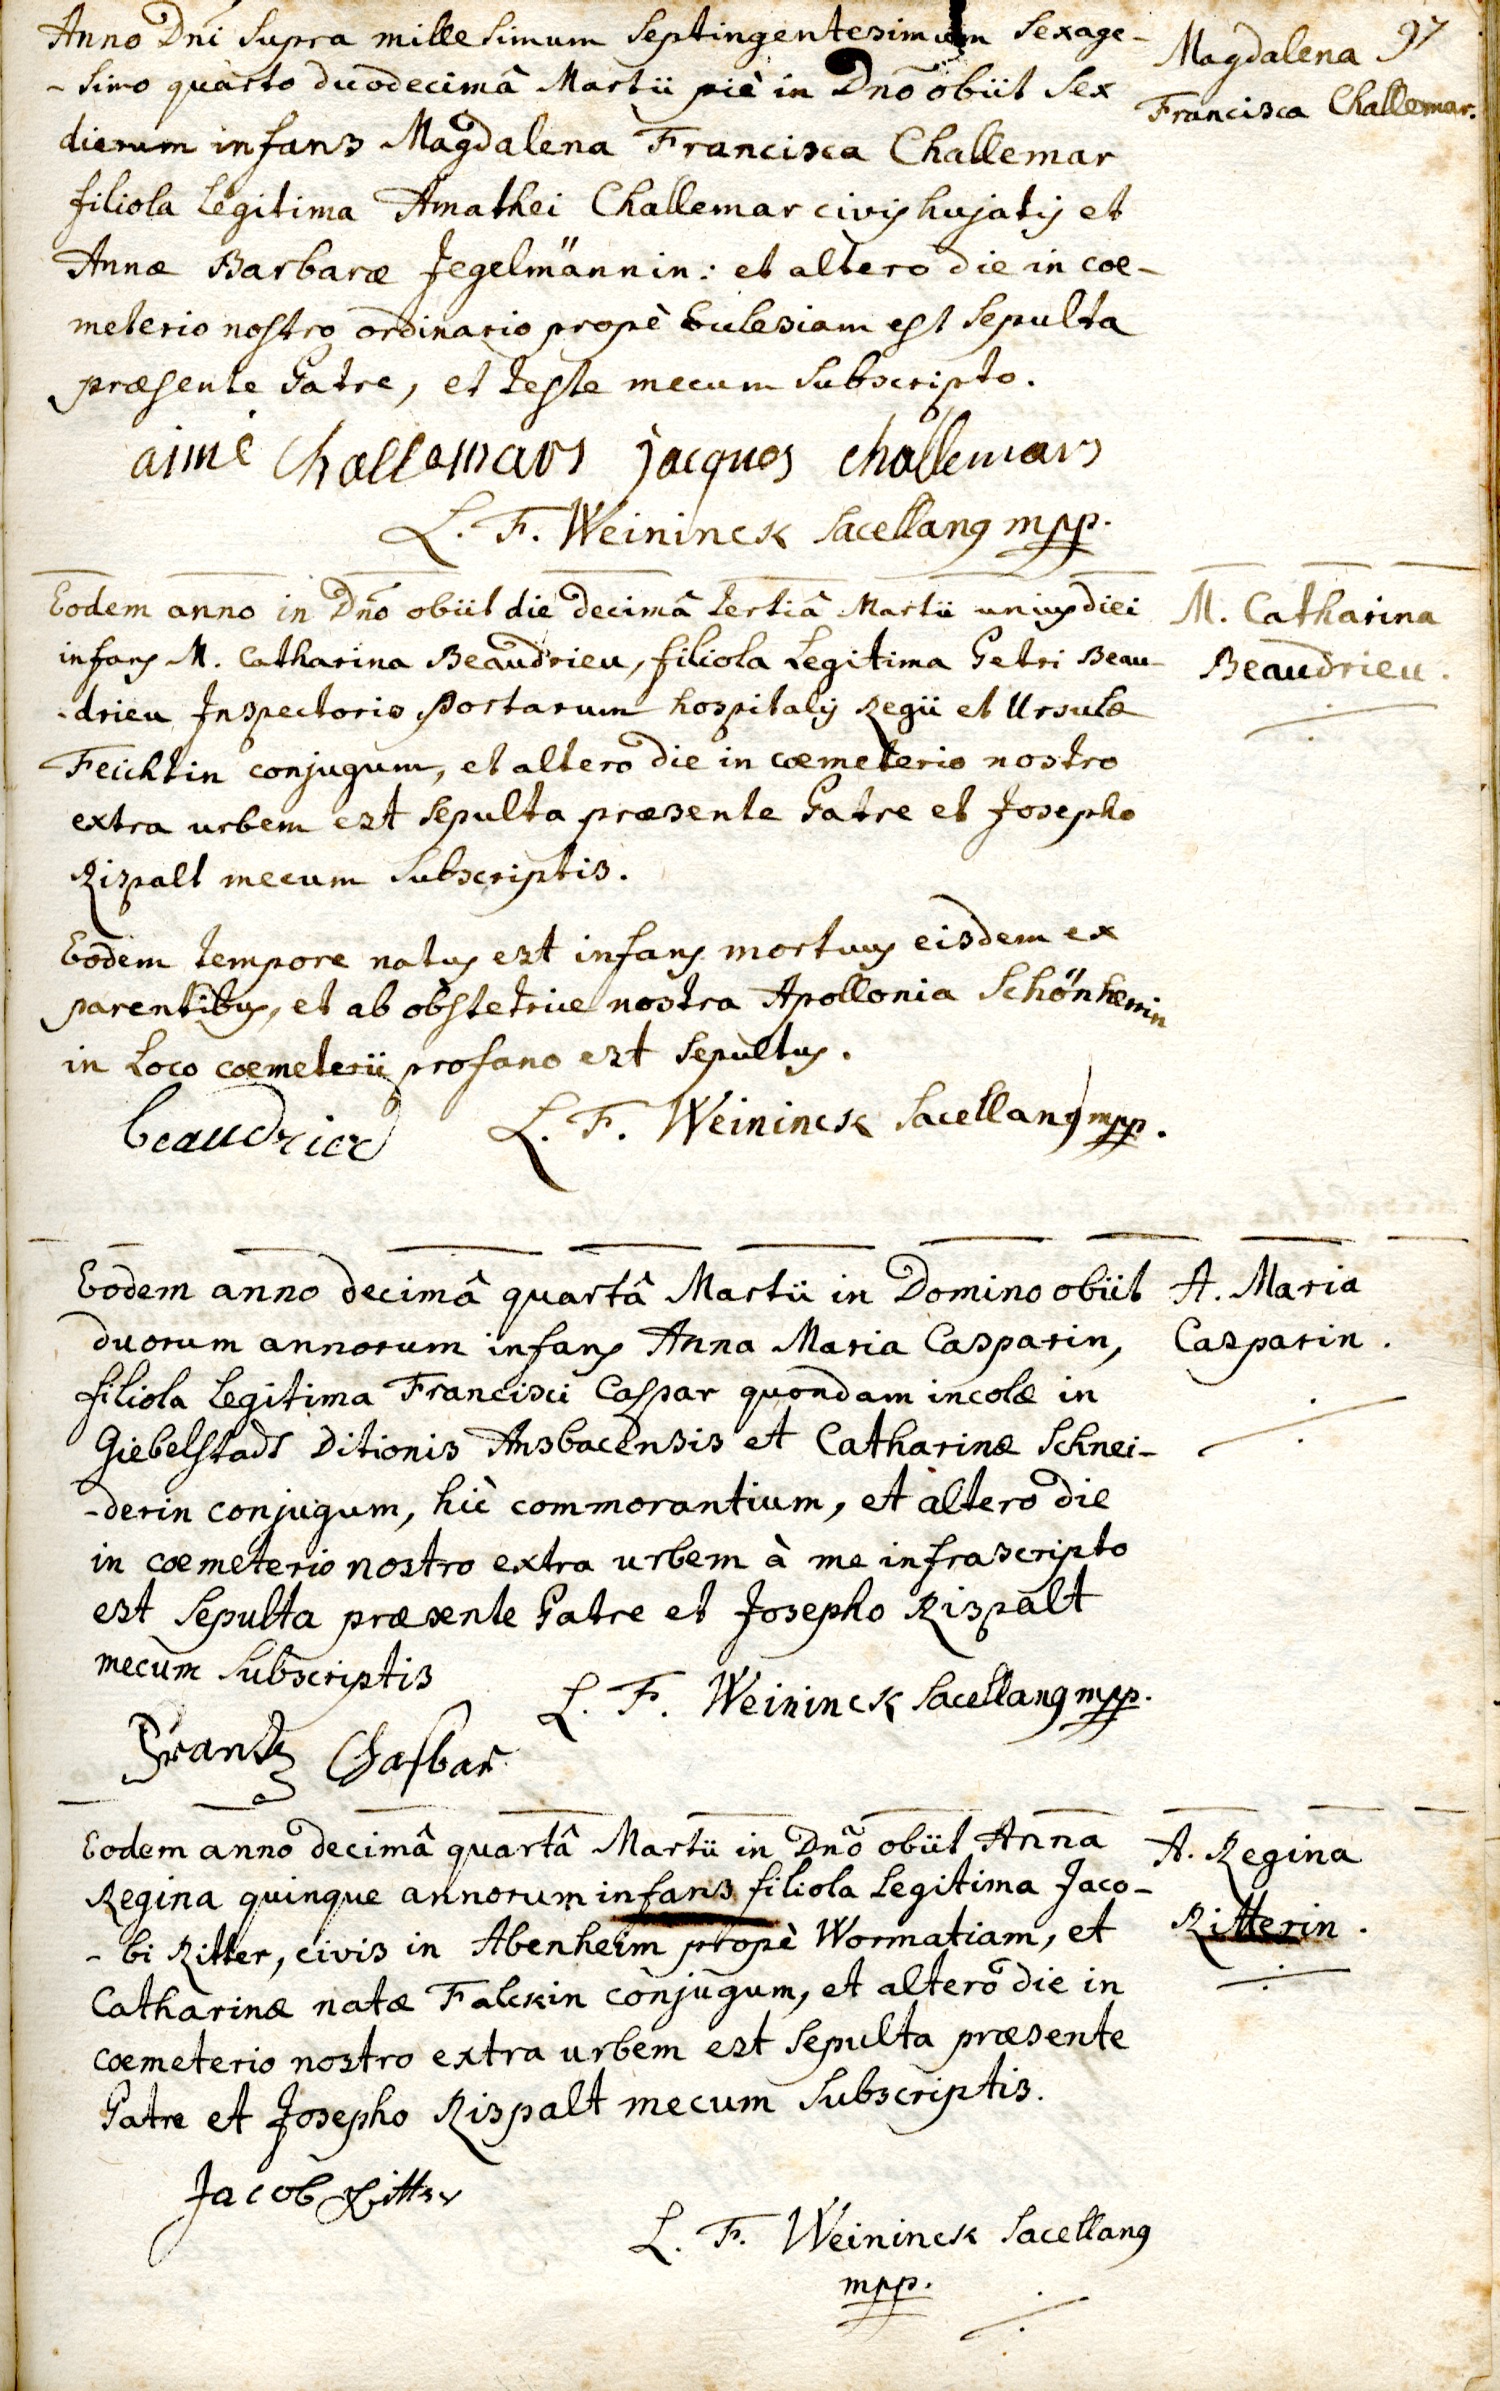 97
Anno Dñi supra millesimum septingentesimum sexage-
-simo quarto duodecimâ Martii piè in Dño obiit sex
dierum infans Magdalena Francisca Challemar
filiola legitima Amathei Challemar civis hujatis et
Annæ Barbaræ Jegelmännin: et altero die in coe-
meterio nostro ordinario propè Ecclesiam est sepulta
præsente Patre, et teste mecum subscripto.
Magdalena
Francisca Challemar.
aimé Challemars jacques challemars
L. F. Weininck Sacellanus mpp.
Eodem anno in Dño obiit die decimâ tertiâ Martii unius diei
infans M. Catharina Beaudrieu, filiola legitima Petri Beau-
-drieu Inspectoris Portarum hospitalis Regii et Ursulæ
Feichtin conjugum, et altero die in coemeterio nostro
extra urbem est sepulta præsente Patre et Josepho
Rispalt mecum subscriptis.
M. Catharina
Beaudrieu.
Eodem tempore natus est infans mortuus eisdem ex
parentibus, et ab obstetrice nostra Apollonia Schönherrin
in loco coemeterii profano est sepultus.
beaudrier L. F. Weininck Sacellanus mpp.
Eodem anno decimâ quartâ Martii in Domino obiit
duorum annorum infans Anna Maria Casparin,
filiola legitima Francisci Caspar quondam incolæ in
Giebelstadt Ditionis Ansbacensis et Catharinæ Schnei-
-derin conjugum, hîc commorantium, et altero die
in coemeterio nostro extra urbem à me infrascripto
est sepulta præsente Patre et Josepho Rispalt
mecum subscriptis
A. Maria
Casparin.
L. F. Weininck Sacellanus mpp.
Frantz Chasbar
Eodem anno decimâ quartâ Martii in Dño obiit Anna
Regina quinque annorum infans filiola legitima Jaco-
-bi Ritter, civis in Abenheim propè Wormatiam, et
Catharinæ natæ Falckin conjugum, et altero die in
coemeterio nostro extra urbem est sepulta præsente
Patre et Josepho Rispalt mecum subscriptis.
A. Regina
Ritterin.
Jacob Ritter
L. F. Weininck Sacellanus
mpp.